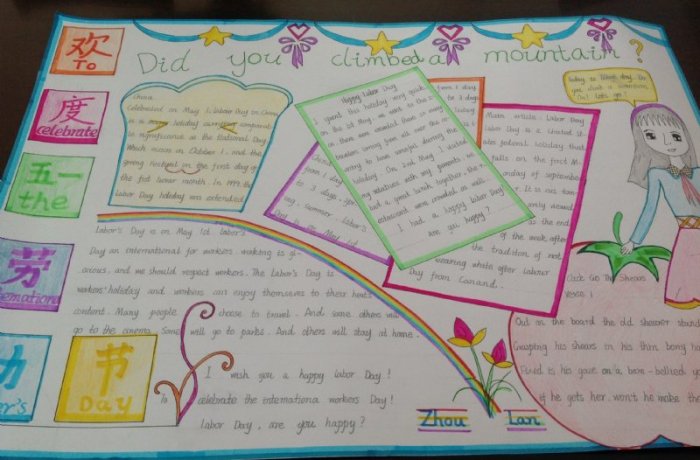 欢
To
Did you climbed a mountain ?
度
celebrate
五一
the
劳
动
节
Day
China
Celebrated on May 1. Labor Day in China
holiday
significance as the National Day
Which occurs in October 1. and the
spring festival on the first day of
the first lunar month. In 1999. the
Labor Day holiday was extended
Happy Labor Day
I spent this holiday very
holiday. On 2nd they, I visited
my relatives with my parents. we
had a great bank together. the
restaurant were crowded as well.
I had a happy labor Day
Are you happy?
from 1 day
to 3 days
Day is the May 1st
Main article: Labor Day
Labor Day is a United St-
ates federal holiday that
falls on the first M-
onday of september
as the end
of the week, after
the tradition of not
wearing white after labour
Day from Canand..
Today is labor day. Do
you climb a mountain.
Out. Let's go!
Labor's Day is on May 1st. labor's
Day an international for workers. working is gl-
orious, and we should respect workers. The Labor's Day is
workers' holiday and workers can enjoy themselves to their hearts
content. Many people choose to travel. And some others will
go to the cinema. Some will go to parks. And others will stay at home.
I wish you a happy labor Day!
To celebrate the internationa workers Day!
labor Day, are you happy?
Zhou Lan
Click Go The Shears
Verse 1
Out on the board the old shearer
Grasping his shears in his thin bony
Fixed is his gaze on a bare-bellied
if he gets her, won't he make the